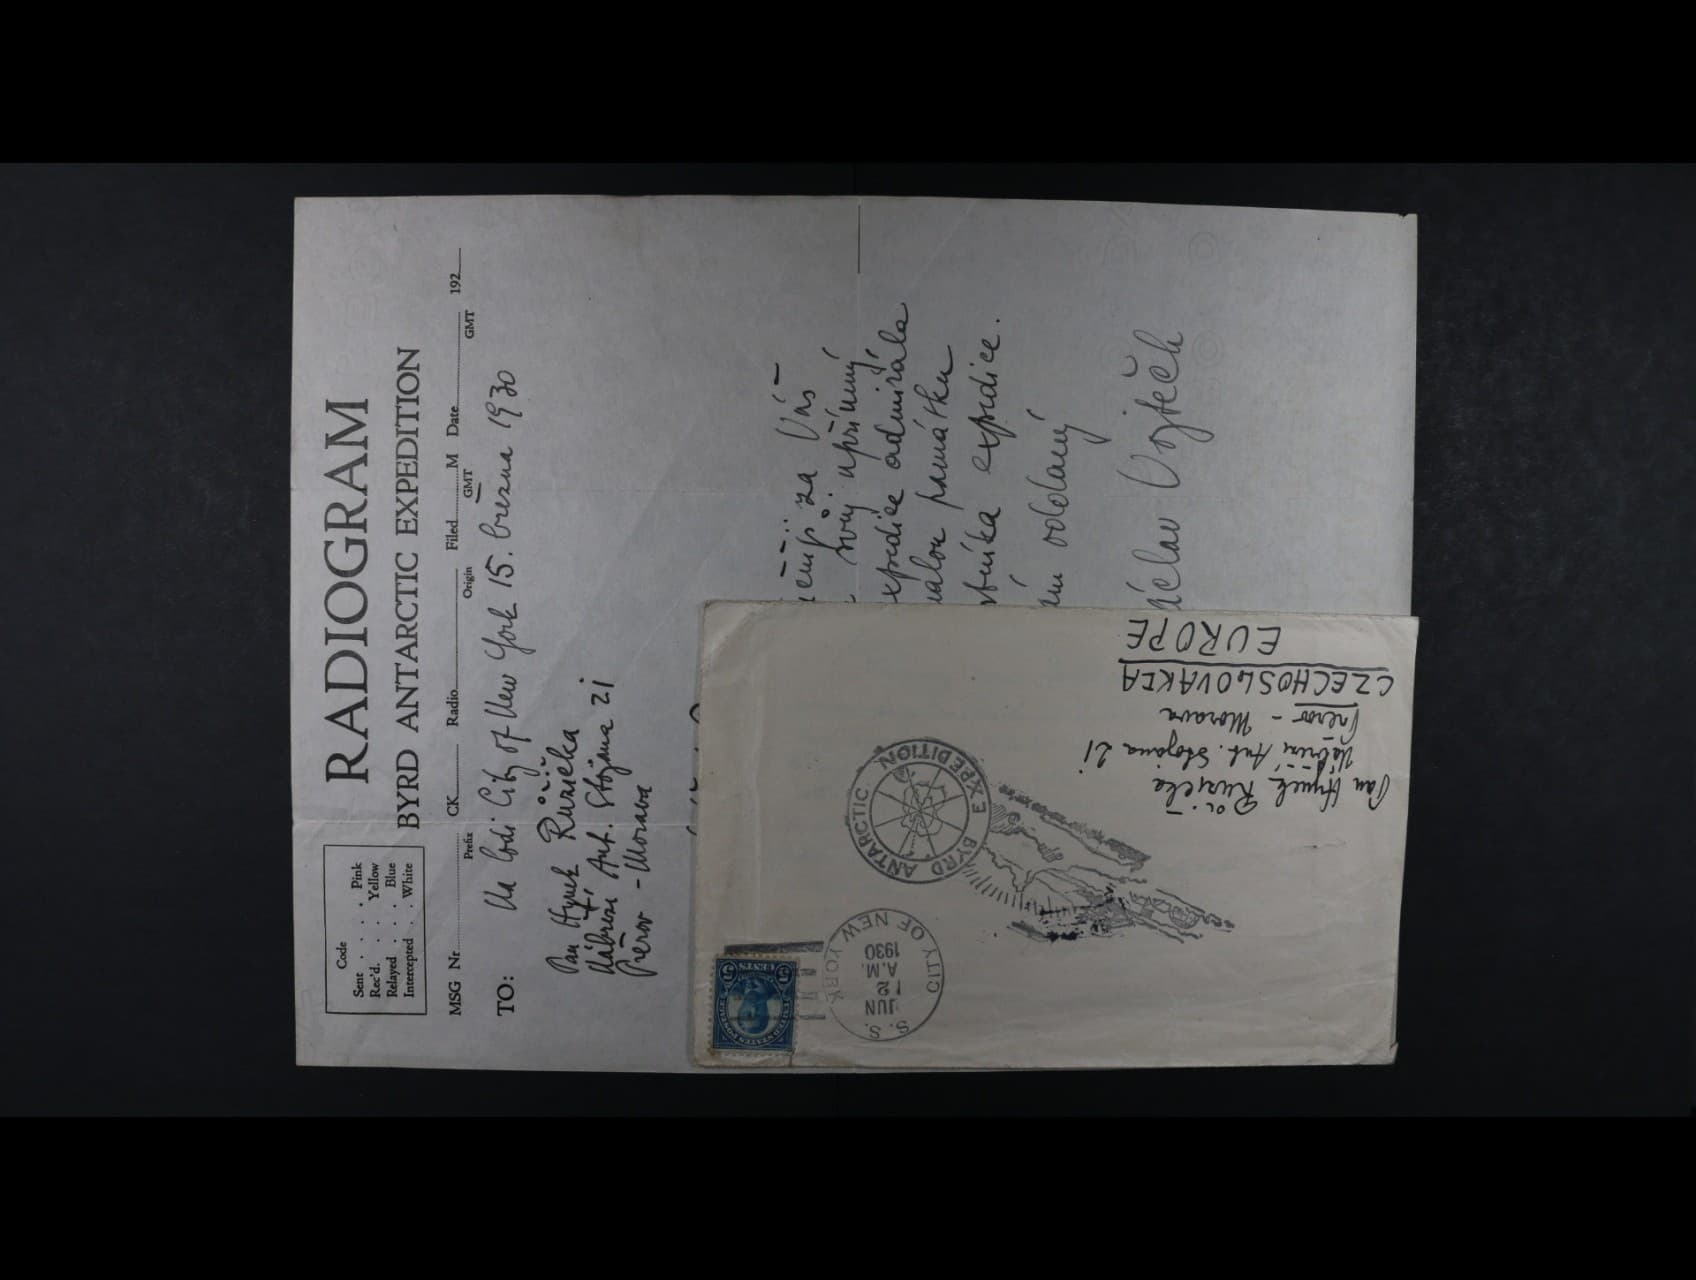 RADIOGRAM
BYRD ANTARCTIC EXPEDITION
Code
Sent . . . . . Pink
Rec'd. . . . Yellow
Relayed . . . . Blue
Intercepted . . White
MSG Nr. CK Radio Filed M Date 192
Prefix Origin GMT GMT
Na lodi City of New York 15. března 1930
TO:
Pan Hynek Růžička
Nábřeží Ant. Stojana 21
Přerov - Morava
za Váš
svůj upřímný
expedice admirála
památku
expedice.
oddaný
Václav Vojtěch
S.S.
CITY OF NEW YORK
JUN
12
A.M.
1930
BYRD ANTARCTIC EXPEDITION
Pan Hynek Růžička
Nábřeží Ant. Stojana 21
Přerov - Morava
CZECHOSLOVAKIA
EUROPE